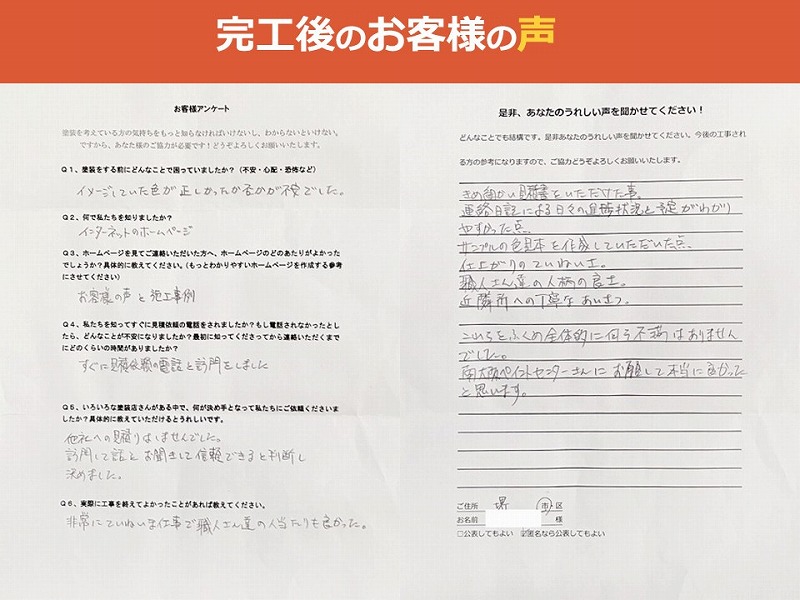 完工後のお客様の声
お客様アンケート
塗装を考えている方の気持ちをもっと知らなければいけないし、わからないといけない。
ですから、あなた様のご協力が必要です!どうぞよろしくお願いいたします。
Q1、塗装をする前にどんなことで困っていましたか?(不安・心配・恐怖など)
イメージしていた色が正しかったか否かが不安でした。
Q2、何で私たちを知りましたか?
インターネットのホームページ
Q3、ホームページを見てご連絡いただいた方へ、ホームページのどのあたりがよかった
でしょうか?具体的に教えてください。(もっとわかりやすいホームページを作成する参考
にさせてください)
お客様の声と施工事例
Q4、私たちを知ってすぐに見積依頼の電話をされましたか?もし電話されなかったとし
たら、どんなことが不安になりましたか?最初に知ってくださってから連絡いただくまで
にどのくらいの時間がありましたか?
すぐに見積依頼の電話と訪問をしました
Q5、いろいろな塗装店さんがある中で、何が決め手となって私たちにご依頼くださいま
したか?具体的に教えていただけるとうれしいです。
他社への見積りはしませんでした。
訪問して話をお聞きして信頼できると判断し
決めました。
Q6、実際に工事を終えてよかったことがあれば教えてください。
非常にていねいな仕事で職人さん達の人当たりも良かった。
是非、あなたのうれしい声を聞かせてください!
どんなことでも結構です。是非あなたのうれしい声を聞かせてください。今後の工事され
る方の参考になりますので、ご協力どうぞよろしくお願いいたします。
きめ細かい見積書をいただけた事。
連絡日記による日々の進捗状況と予定がわかり
やすかった点
サンプルの色見本を作成していただいた点
仕上がりのていねいさ。
職人さん達の人柄の良さ。
近隣所への丁寧なあいさつ。
これらをふくめ全体的に何ら不満はありません
でした。
南大阪ペイントセンターさんにお願いして本当に良かった
と思います。
ご住所 堺 市 区
お名前 様
□公表してもよい ☑匿名なら公表してもよい